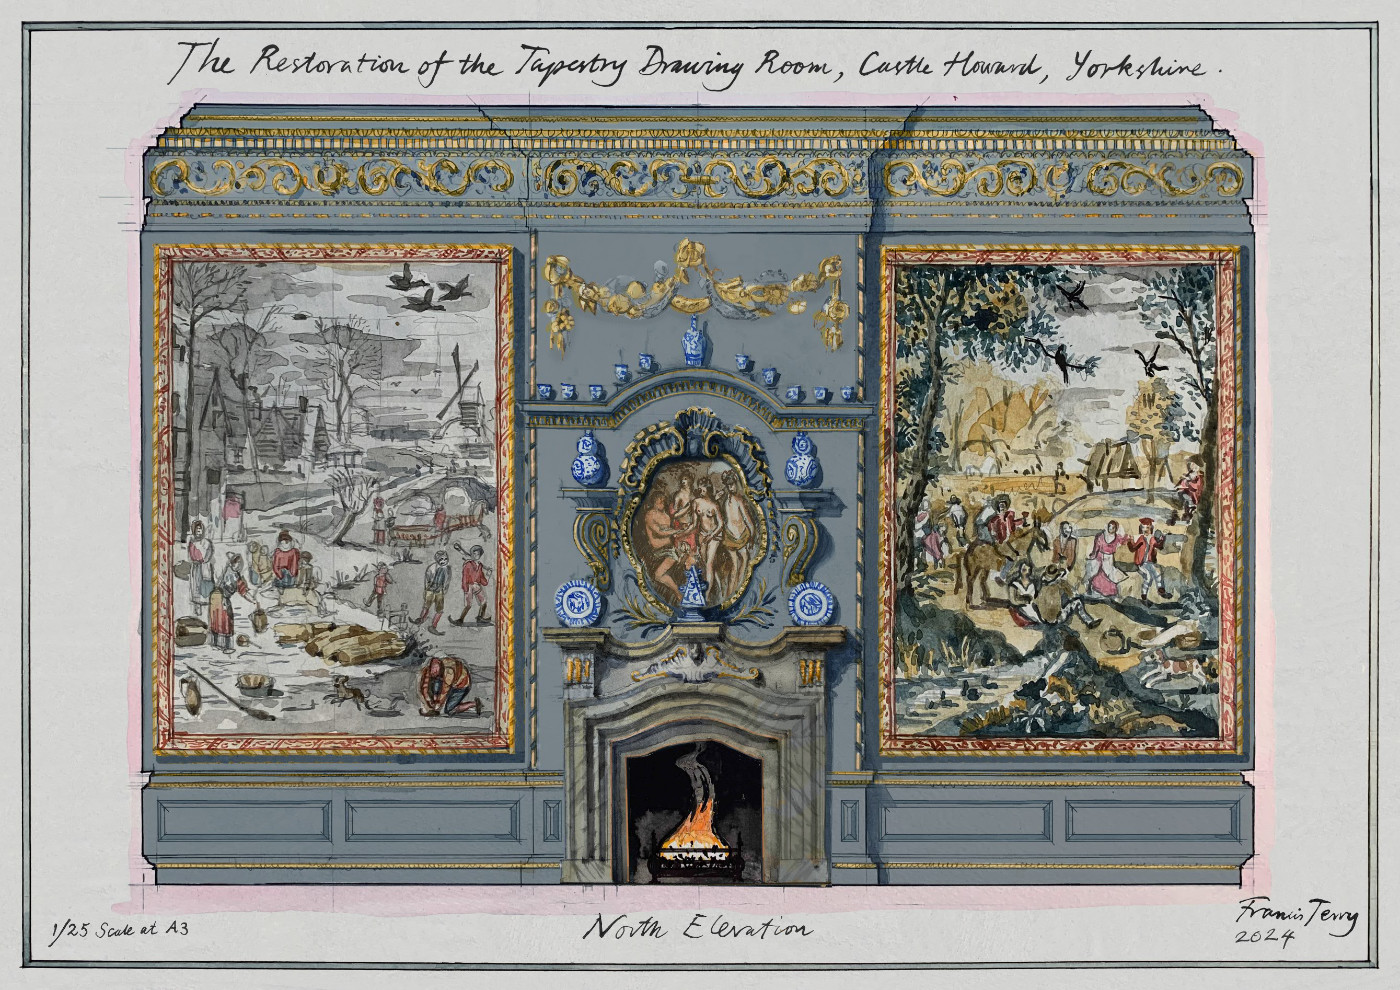 The Restoration of the Tapestry Drawing Room, Castle Howard, Yorkshire.
1/25 Scale at A3
North Elevation
Francis Terry
2024